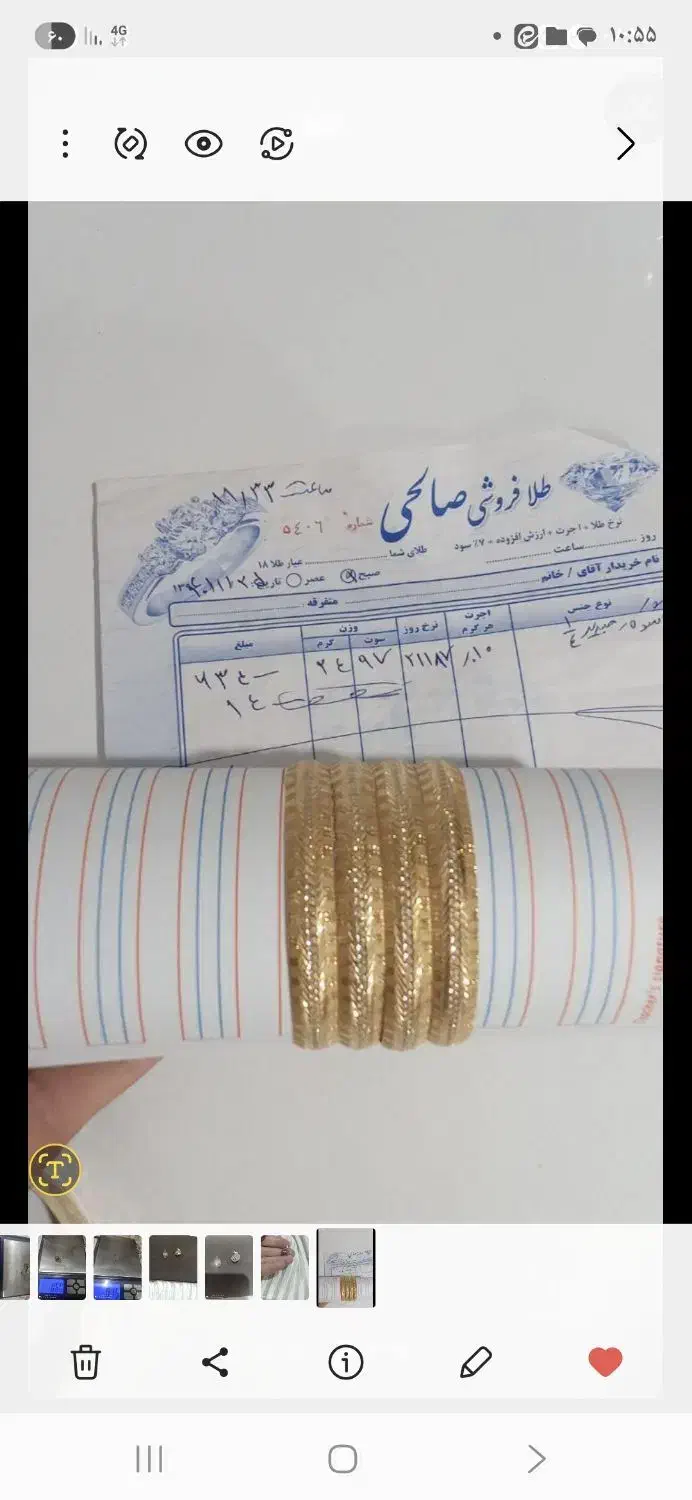 ۱۰:۵۵
4G
۶۰
ساعت ۱۱/۳۳
طلا فروشی صالحی
شماره ۵۴۰۶
نرخ طلا + اجرت + ارزش افزوده + ۷٪ سود
روز ساعت طلای شما عیار طلا ۱۸
صبح عصر تاریخ
نام خریدار آقای / خانم متفرقه
نوع جنس اجرت هر گرم نرخ روز وزن سوت گرم مبلغ
۱۰٪ ۲۱۱۸۷ ۹۷ ۲۴ ۶۳۴
۱۴
T